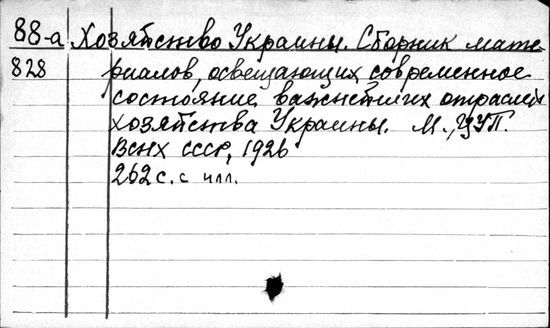 88-а Хозяйство Украины. Сборник мате-
828 риалов, освещающих современное
состояние важнейших отраслей
хозяйства Украины. М., ЦУП.
ВСНХ СССР, 1926
262 с. с илл.